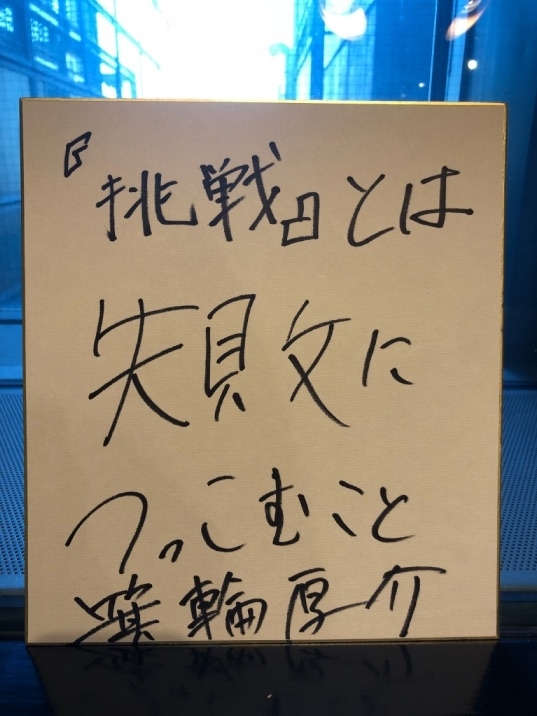 『挑戦』とは
失敗に
つっこむこと
箕輪厚介